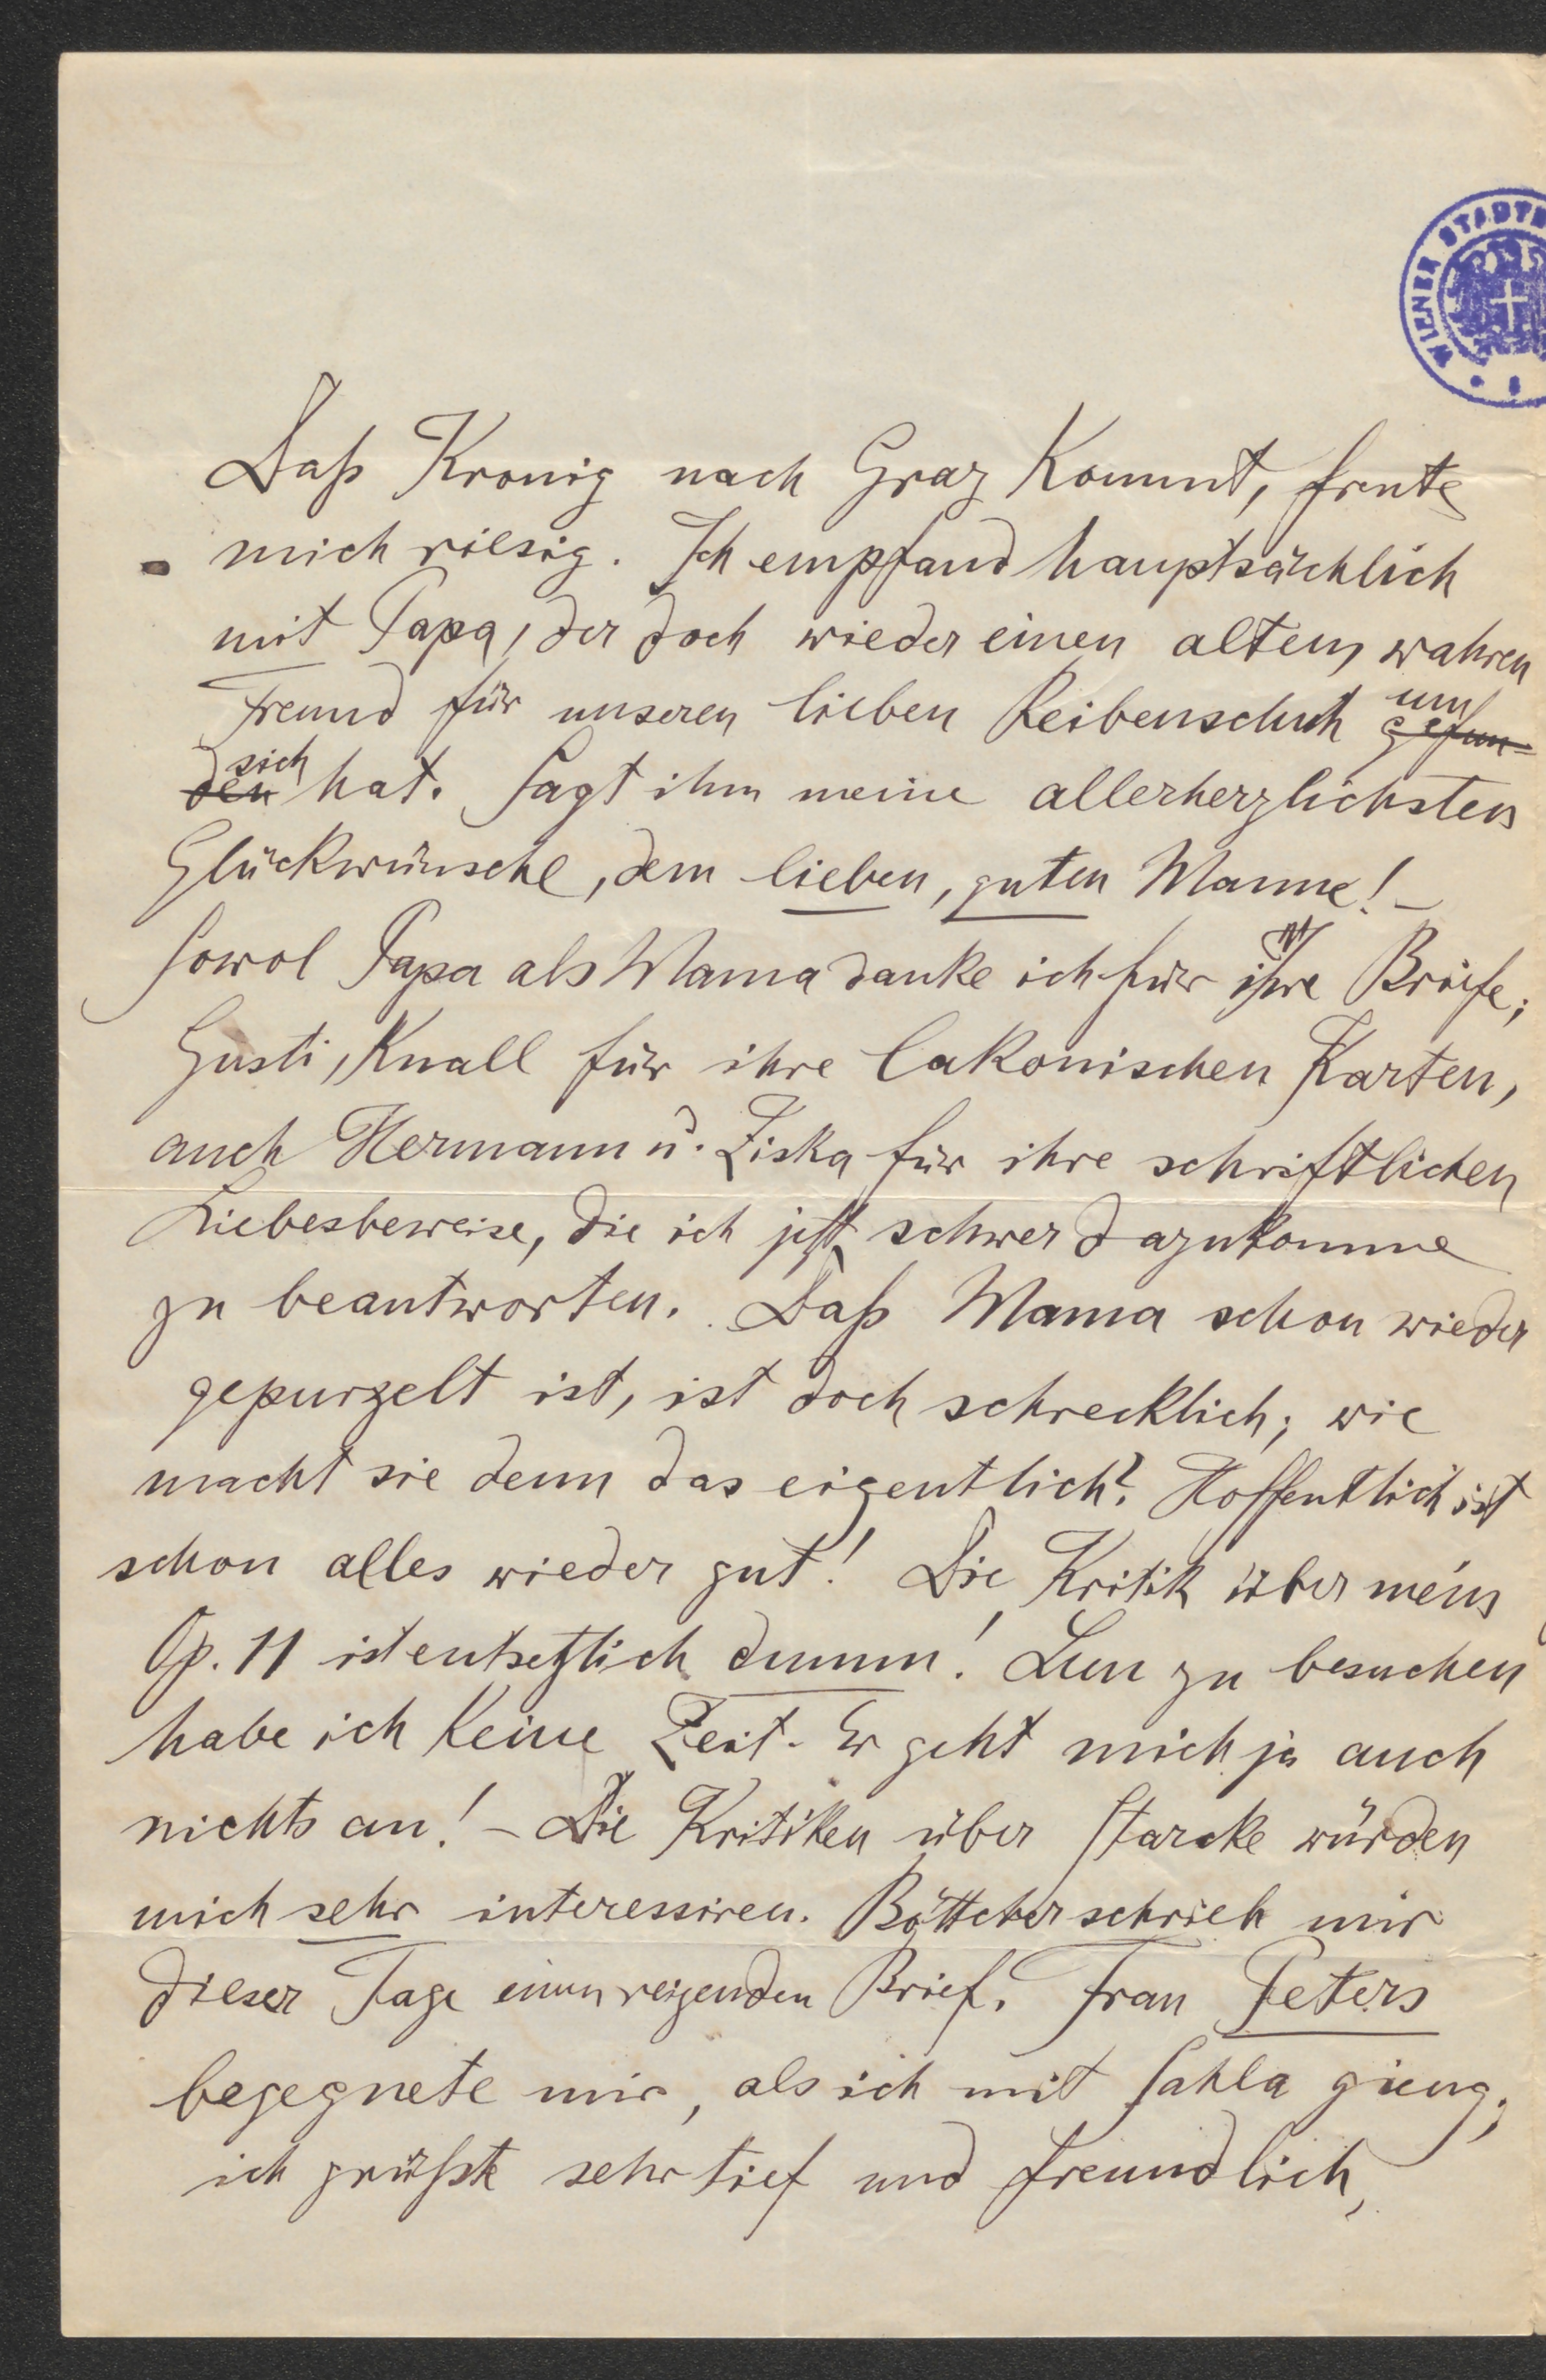 WIENER STADTB
Daß Kronig nach Graz kommt, freute
mich riesig. Ich empfand hauptsächlich
mit Papa, der doch wieder einen alten, wahren
Freund für unseren lieben Reibenschuh um
gefun-
sich
den hat. Sagt ihm meine allerherzlichsten
Glückwünsche, dem lieben, guten Manne! –
Sowol Papa als Mama danke ich für ihre Briefe;
Gusti, Knall für ihre lakonischen Karten,
auch Hermann u. Ziska für ihre schriftlichen
Liebesbeweise, die ich jetzt schwer dazukomme
zu beantworten. Daß Mama schon wieder
gepurzelt ist, ist doch schrecklich; wie
macht sie denn das eigentlich? Hoffentlich ist
schon alles wieder gut! Die Kritik über mein
Op. 11 ist entsetzlich dumm! Lun zu besuchen
habe ich keine Zeit. Er geht mich ja auch
nichts an! – Die Kritiken über Starcke würden
mich sehr interessiren. Böttcher schrieb mir
dieser Tage einen reizenden Brief. Frau Peters
begegnete mir, als ich mit Sahla gieng;
ich grüßte sehr tief und freundlich,